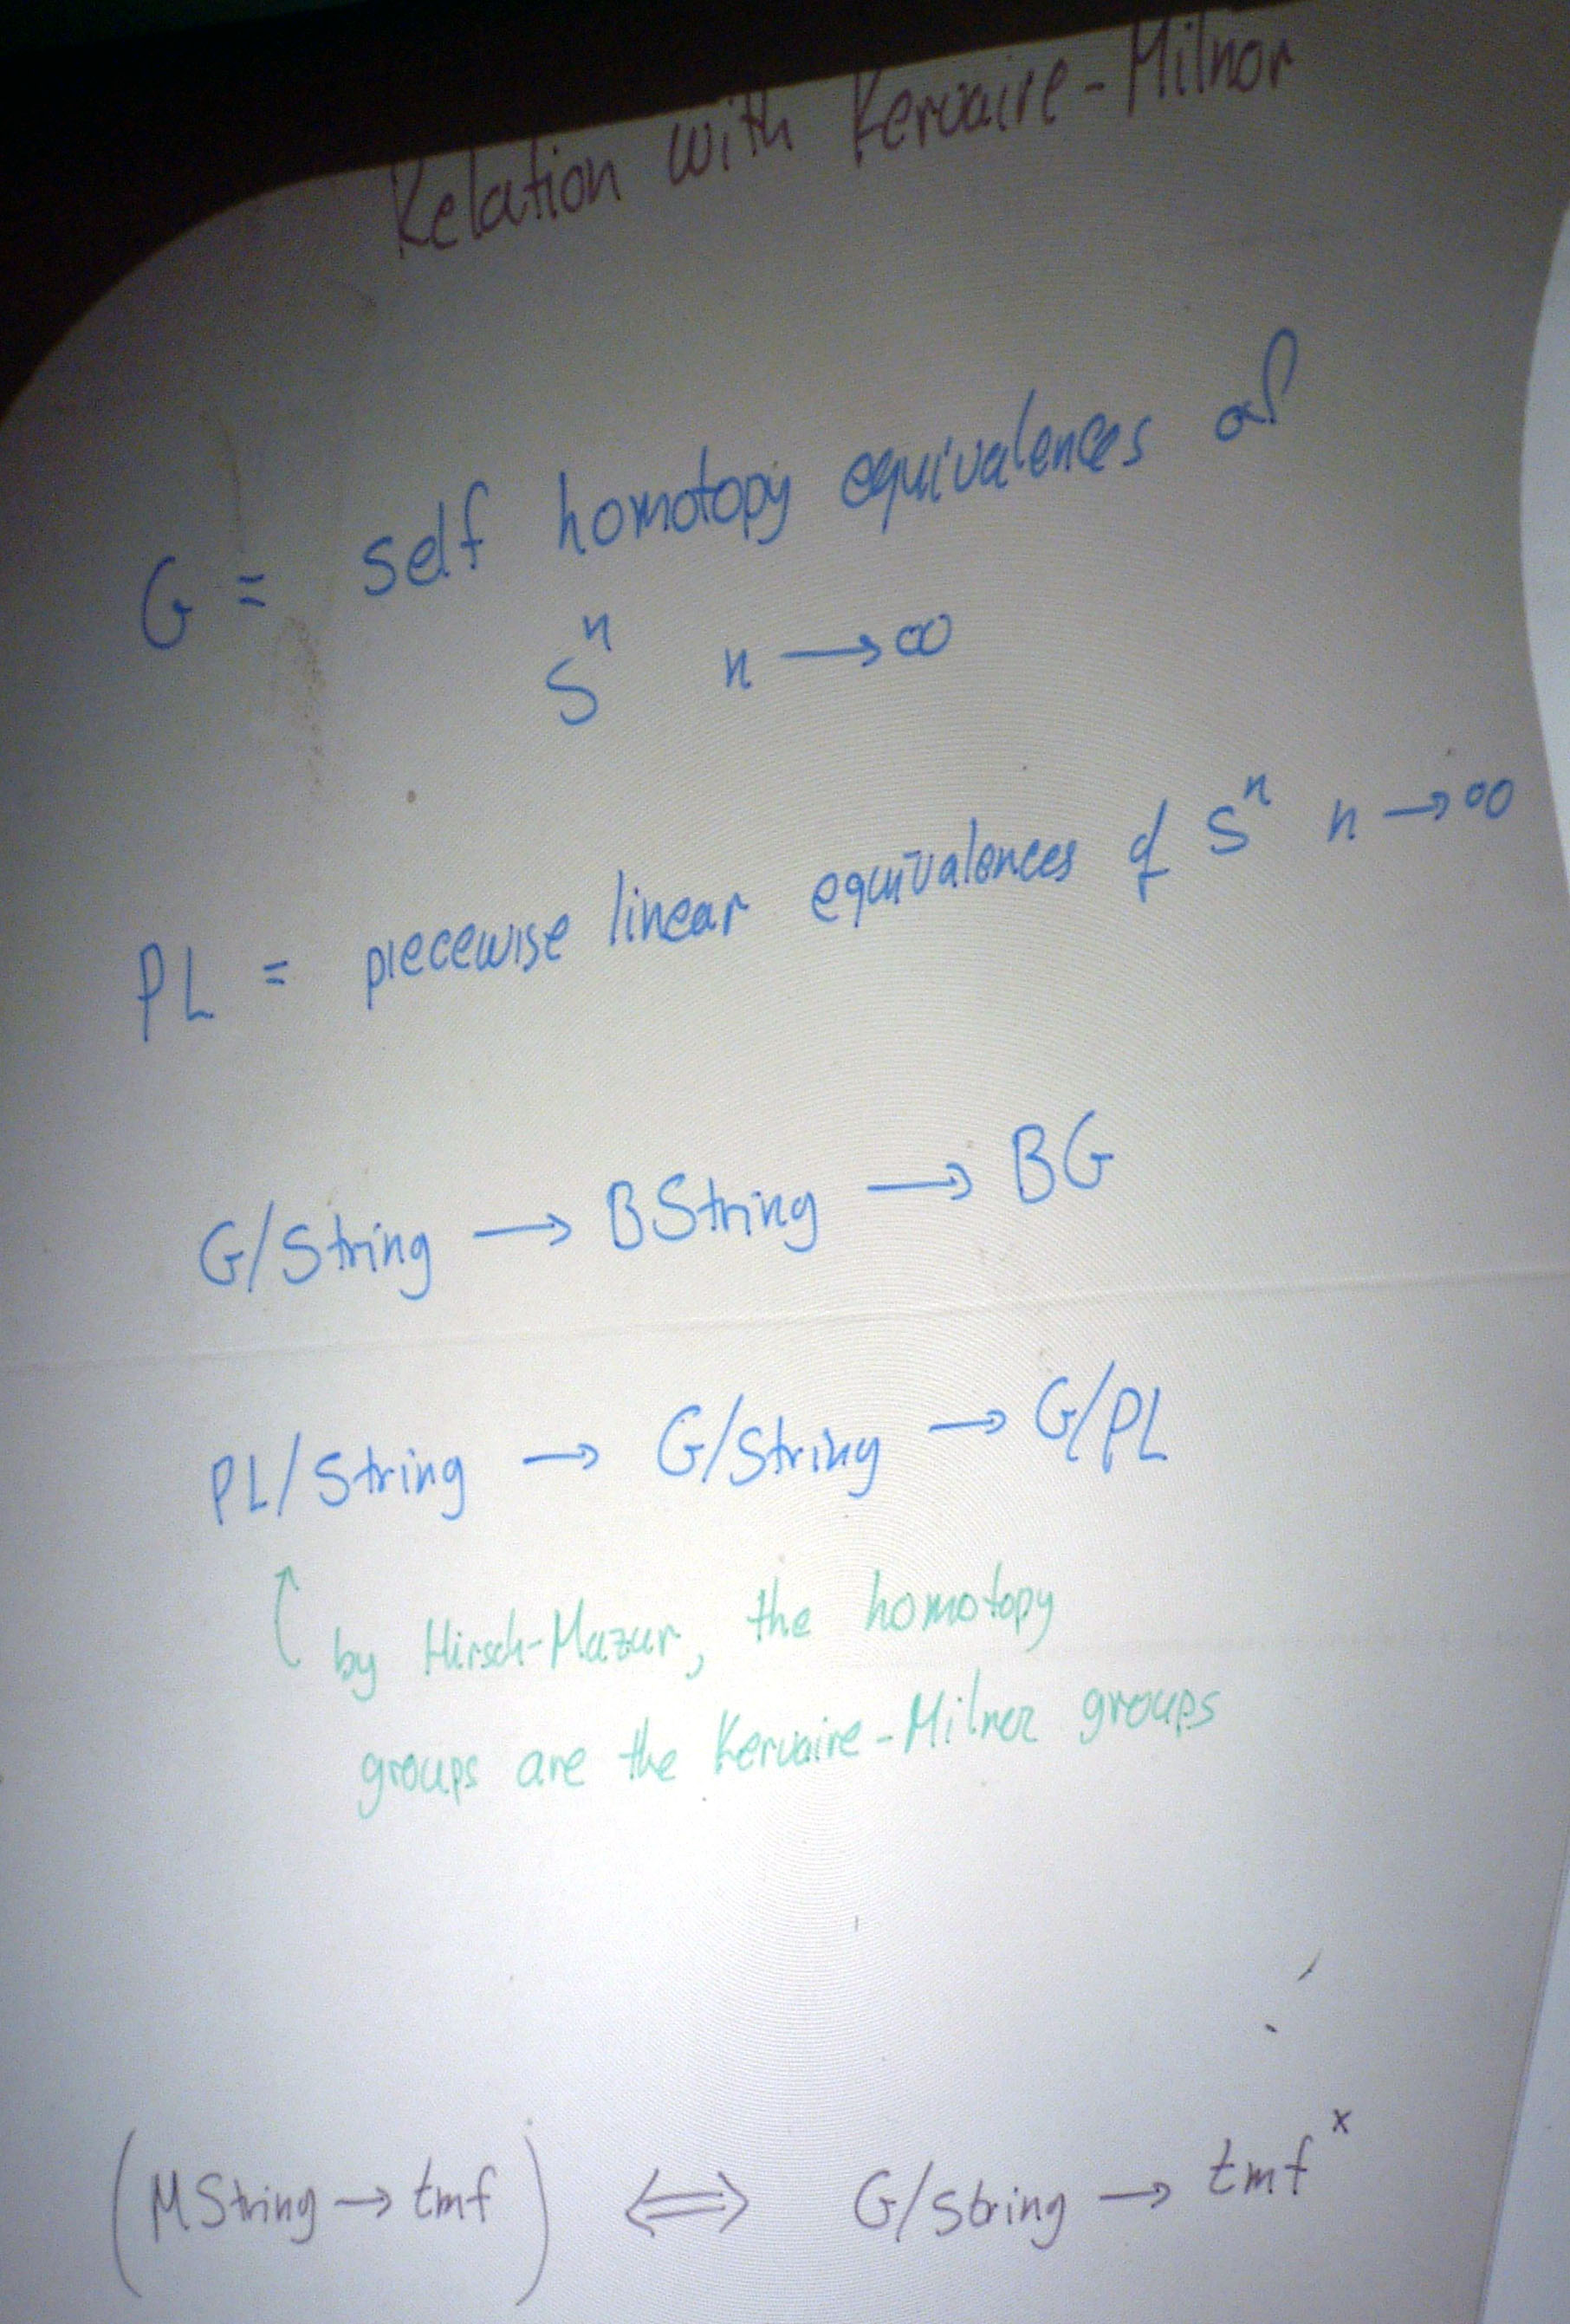 Relation with Kervaire-Milnor
G = self homotopy equivalences of
Sⁿ n → ∞
PL = piecewise linear equivalences of Sⁿ n → ∞
G/String → BString → BG
PL/String → G/String → G/PL
by Hirsch-Mazur, the homotopy
groups are the Kervaire-Milnor groups
(MString → tmf) ⟺ G/String → tmfˣ